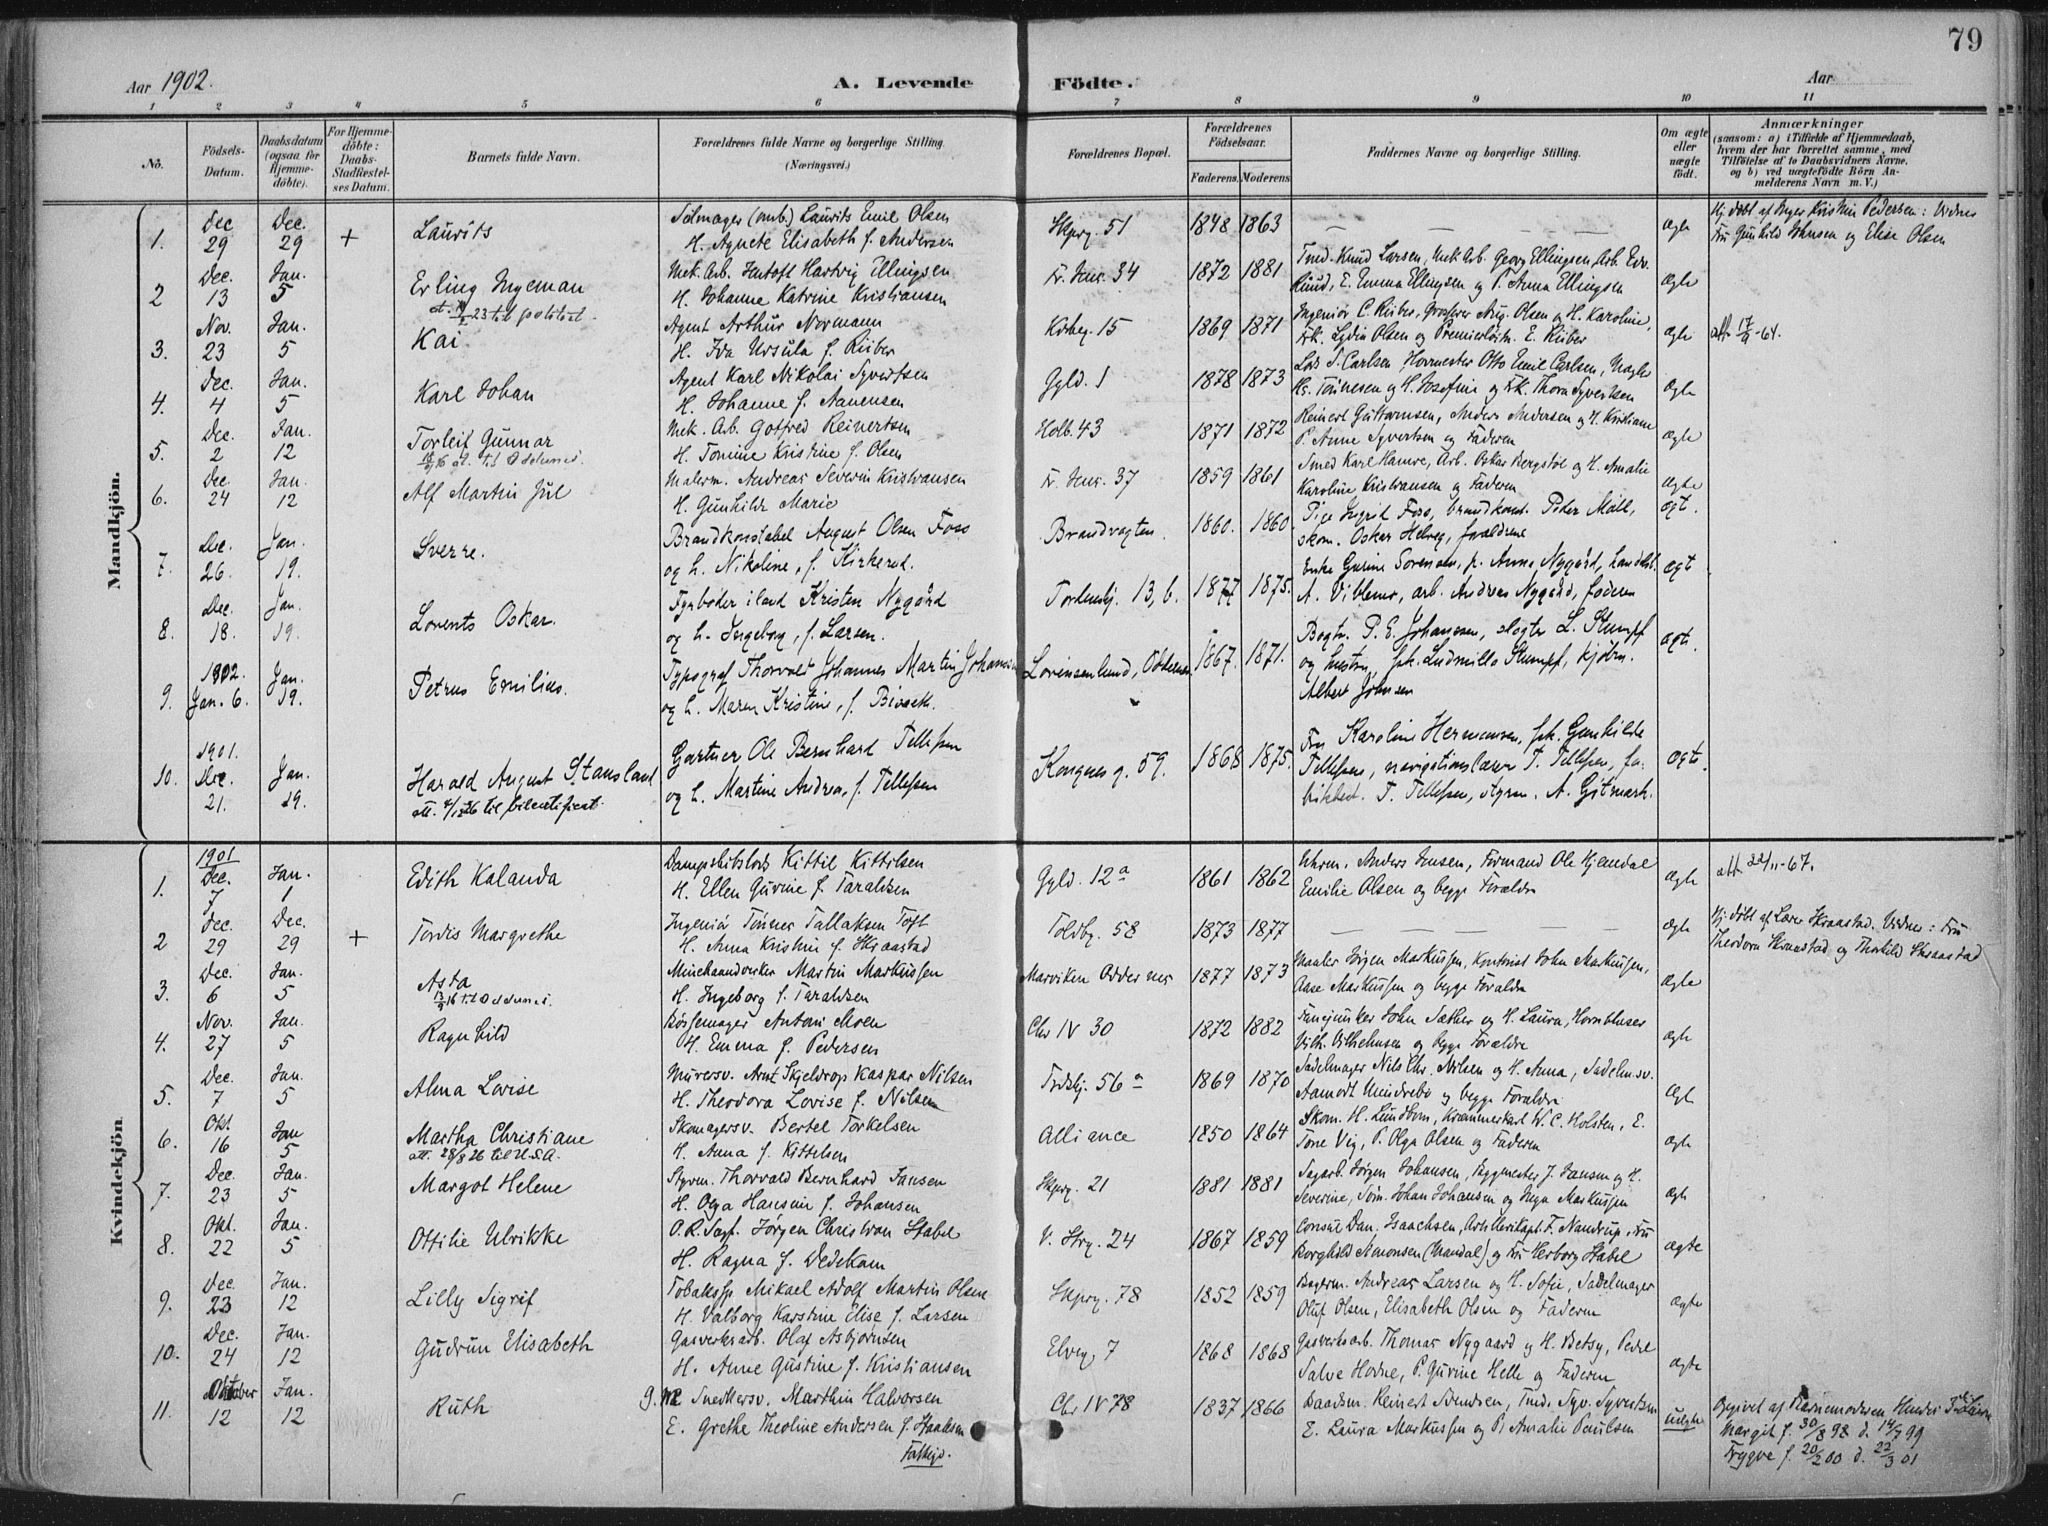 79
Aar 1902.
A. Levende Födte.
Aar
1 2 3 4 5 6 7 8 9 10 11
No.
Födsels-Datum.
Daabsdatum (ogsaa for Hjemme-döbte).
For Hjemme-döbte: Daabs-Stadfæstel-ses Datum.
Barnets fulde Navn.
Forældrenes fulde Navne og borgerlige Stilling. (Næringsvei.)
Forældrenes Bopæl.
Forældrenes Födselsaar.
Faderens. Moderens
Faddernes Navne og borgerlige Stilling.
Om ægte eller uægte födt.
Anmærkninger
(saasom: a) i Tilfælde af Hjemmedaab, hvem der har forrettet samme, med Tilföielse af to Daabsvidners Navne, og b) ved uægtefödte Börn An-melderens Navn m. V.)
Mandkjön.
1. Dec 29 Dec. 29 + Laurits
Seilmager (omb.) Laurits Emil Olsen
H. Agnete Elisabeth f. Andersen
Skprg. 51 1848 1863 ægte
Hj. døbt af Inger Kristin Pedersen: Vidner
Fru Gunhild Hansen og Elise Olsen
2 Dec. 13 Jan. 5 Erling Ingeman
Mek. Arb. Hartvig Ellingsen
H. Johanne Katrine Kristiansen
34 1872 1881
Smed. Knud Larsen, Mek Arb. Georg Ellingsen, Arb. Edv.
Ruud, E. Emma Ellingsen og P. Anna Ellingsen
ægte
3. Nov. 23 Jan. 5 Kai
Agent Arthur Normann
H. Ida Ursula f. Rüber
Kirkeg. 15 1869 1871
Ingeniør C. Rüber, Grosserer Aug. Olsen og H. Karoline,
Frk. Lydia Olsen og Premierløitn. E. Rüber
ægte att 17/9-64.
4. Dec. 4 Jan. 5 Karl Johan
Agent Karl Nikolai Syvertsen
H. Johanne f. Aanensen
Gyld. 1 1878 1873
Lods S. Carlsen, Havnmester Otto Emil Carlsen,
Tönnesen og H. Josefine og Frk. Thora Syvertsen
ægte
5. Dec. 2 Jan. 12 Torleif Gunnar
Mek. Arb. Gotfred Reinertsen
H. Tomine Kristine f. Olsen
Holb. 43 1871 1872
Reinert Guttormsen, Anders Andersen og H. Kristiane
P. Anne Syvertsen og Faderen
ægte
6. Dec 24 Jan. 12 Alf Martin Jul
Malerm. Andreas Severin Kristiansen
H. Gunhilde Marie
37 1859 1861
Smed Karl Hamre, Arb. Oskar Bergstøl og H. Amalie
Karoline Kristiansen og Faderen
ægte
7. Dec. 26. Jan. 19. Sverre.
Brandkonstabel August Olsen Foss
og h. Nikoline, f. Kirkerød.
Brandvagten. 1860. 1860.
Pige Ingrid Foss, brandkonst. Peder Moll,
skom. Oskar Helvig, forældrene
ægt.
8. Dec. 18. Jan. 19. Lorents Oskar.
Fyrbøder iland Kristen Nygård
og h. Ingeborg, f. Larsen.
Tordenskj. 13, b. 1877 1875.
Enke Gurine Sørensen, p. Anna Nygård, handelsb.
A. Villemo, arb. Andreas Nygård, faderen
ægt
9. 1902. Jan. 6. Jan. 19. Petrus Emilius.
Typograf Thorvald Johannes Martin Johansen
og h. Maren Kristine, f.
Lorensenslund, Oddernes 1867. 1871.
Bogtr. P. E. Johannsen, slagter L. Stumpf
og hustru, frk. Ludmilla Stumpf, kjøbm.
Albert Johnsen
ægt.
10. 1901. Dec. 21. Jan. 19. Harald August Stausland
att. 4/12 26 til bilcertificat.
Gartner Ole Bernhard Tellefsen
og h. Martine Andrea, f. Tellefsen
Kongens g. 59. 1868 1875.
Fru Karoline Hermansen, frk. Gunhilde
Tellefsen, navigationslærer T. Tellefsen, fa-
brikbest. T. Tellefsen, styrm. A. Gitmark.
ægt.
Kvindekjön
1. 1901 Dec. 7 Jan. 1 Edith Kalanda
Dampskibslods Kittil Kittilsen
H. Ellen Gurine f. Taraldsen
Gyld. 12a 1861 1862
Uhrm. Anders Jensen, Formand Ole Hjendal
Emilie Olsen og begge Forældre
ægte att 22/11-67.
2 Dec. 29 Dec. 29 + Tordis Margrethe
Ingeniör Tönnes Tallaksen Toft
H. Anna Kristine f. Skraastad
Toldbg. 58 1873 1877 ægte
Hj. døbt af Lærer Skraastad. Vidner: Fru
Theodora Skraastad og Thorkild Skraastad
3. Dec. 6 Jan. 5 Asta
13/9 16 til Oddernes.
Minehaandverker Martin Markussen
H. Ingeborg f. Taraldsen
Marviken Oddernes 1877 1873
Maaler Jörgen Markussen, Kontorist John Markussen,
Aase Markussen og begge Forældre
ægte
4. Nov. 27 Jan. 5 Ragnhild
Børstemager Anton Moen
H. Emma f. Pedersen
Chr IV 30 1872 1882
John Sæther og H. Laura, Hornblæser
Vilh. Vilhelmsen og begge Forældre
ægte
5. Dec. 7 Jan. 5 Alma Lovise
Murersv. Arnt Skjeldrop Kaspar Nilsen
H. Theodora Lovise f. Nilsen
Trdskj. 56a 1869 1870
Sadelmager Nils Chr. Nilsen og H. Anna, Sadelm.sv.
Aamodt Mindrebø og begge Forældre
ægt
6. Okt 16 Jan 5 Martha Christiane
att. 28/8 26 til U.S.A.
Skomagersv. Bertel Torkelsen
H. Anna f. Kittelsen
Alliance 1850 1864
Skom. H. Lundbom, Kræmmerkarl W. C. Holsten, E.
Tone Vig, P. Olga Olsen og Faderen
ægte
7. Dec. 23 Jan. 5 Margot Helene
Styrm. Thorvald Bernhard Jansen
H. Olga Hansine f. Johansen
Skprg. 21 1881 1881
Sagarb. Jörgen Johansen, Bygmester J. Jansen og H.
Severine, Töm. Johan Johansen og Inga Markussen
ægte
8. Okt. 22 Jan. 5 Ottilie Ulrikke
O.R. Sagf. Jörgen Christian Stabel
H. Ragna f. Dedekam
V. Strg. 24 1867 1859
Consul Dan. Isaachsen, Artillerikapt. F. Nandrup, Fru
Borghild Amonsen (Mandal) og Fru Herborg Stabel
ægte
9. Dec. 23 Jan. 12 Lilly Sigrid
Tobakssp. Mikael Adolf Martin Olsen
H. Valborg Karstine Elise f. Larsen
Skprg. 78 1852 1859
Bagerm. Andreas Larsen og H. Sofie, Sadelmager
Oluf Olsen, Elisabeth Olsen og Faderen
ægte
10. Dec. 24 Jan. 12 Gudrun Elisabeth
Gasverksarb. Olaf Asbjörnsen
H. Anne Gustine f. Kristiansen
Elveg 7 1868 1868
Gasverksarb. Thomas Nygaard og H. Betsy, Peder
Salve Hodne, P. Gurine Helle og Faderen
ægte
11. Oktober 12 Jan. 12 Ruth
Snedkersv. Marthin Halvorsen
E. Grethe Theoline Andersen f. Isaaksen
Chr IV 78 1837 1866
Baadsm. Reinert Svendsen, Tmd. Syv. Syvertsen
E. Laura Markussen og P. Amalie Paulsen
uægte
Opgivet af Barnemoderen
Margit f. 30/8 98 d. 14/7 99
Trygve f. 20/2 00 d. 22/3 01